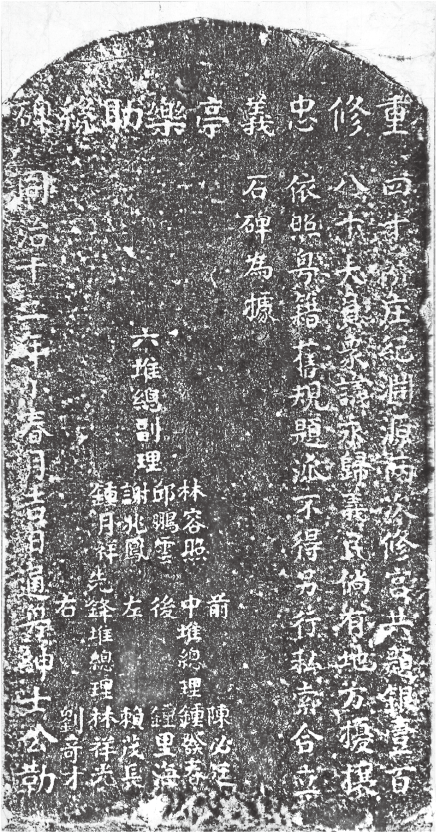 重修忠義亭樂助緣碑
四十份庄紀開原兩次修宮共題銀壹百
八十大員眾議永歸義民倘有地方擾攘
依照粵籍舊規題派不得另行私索合立
石碑為據
六堆總副理
林容照
邱鵬雲
謝兆鳳
鍾月祥
前 陳必
中堆總理鍾發春
後 鍾里海
左 賴茂長
先鋒堆總理林祥光
右 劉奇才
同治十二年小春月吉日通粵紳士公勒